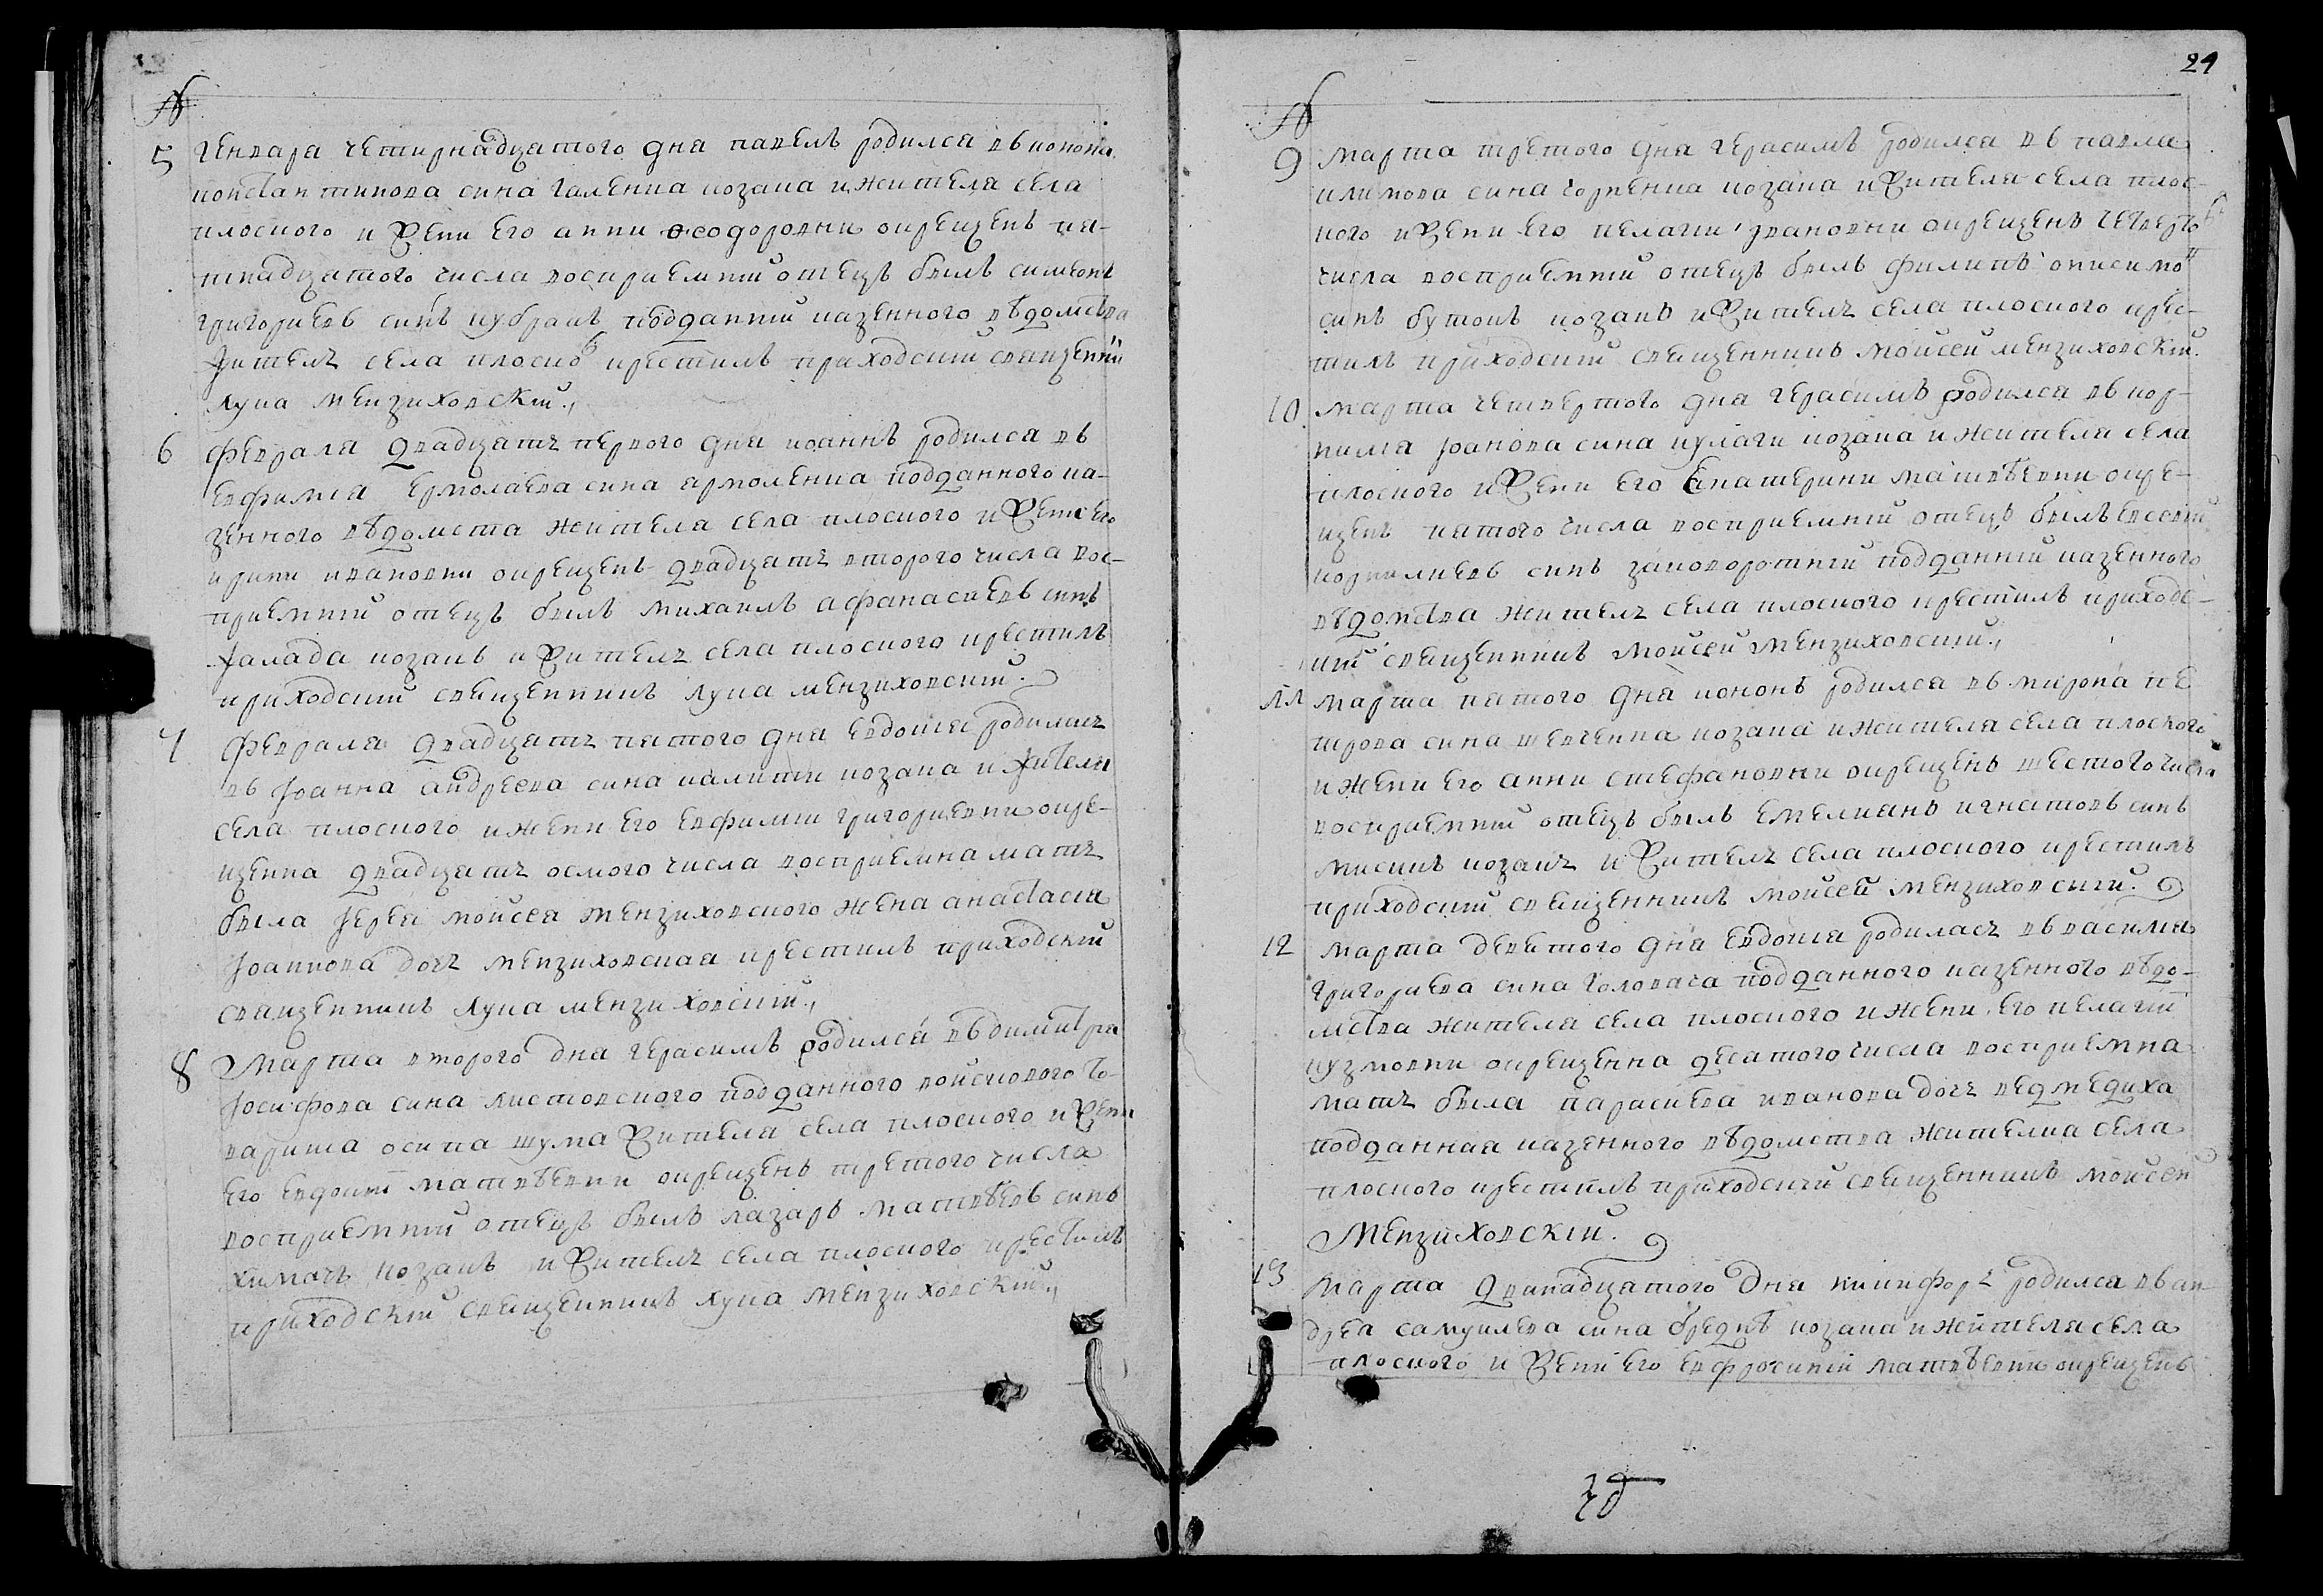 №
5 Генваря четирнадцатого дня павелъ родился въ конона
константинова сина галенка козака и жителя села
плоского и жени его анни ѳеодоровни окрещенъ пя-
тнадцатого числа восприемний отецъ былъ симеонъ
григориевъ синъ кубракъ подданний казенного вѣдомства
житель села плоског крестилъ приходский священник
лука мензиховский.,
6 февраля двадцать первого дня иоаннъ родился въ
евфимия ермолаева сина ярмоленка подданного ка-
зенного вѣдомста жителя села плоского и жени его
ирини ивановни окрещенъ двадцать второго числа вос-
приемний отецъ былъ михаилъ афанасиевъ синъ
козакъ и житель села плоского крестилъ
приходский священникъ лука мензиховский.
7 февраля двадцать пятого дня евдокия родилась
въ Іоанна андреева сина калити козака и жителя
села плоского и жени его евфимии григориевни окре-
щенна двадцать осмого числа восприемна мать
была Іерея моисея мензиховского жена анастасия
Іоаннова дочь мензиховская крестилъ приходский
священникъ лука мензиховский.,
8 Марта второго дня герасимъ родился въ димитрия
Іосифова сина листовского подданного войскового то-
вариша осипа шума жителя села плоского и жени
его евдокии матвѣевни окрещенъ третого числа
восприемний отецъ былъ лазарь матвѣевъ синъ
химачъ козакъ и житель села плоского крестилъ
приходский священникъ лука мензиховский.,
24
№
9 марта третого дня герасимъ родился въ павла
климова сина козака и жителя села плос-
кого и жени его пелагии Ивановни окрещенъ четвертог
числа восприемний отецъ былъ филипъ онисимов
синъ бутокъ козакъ и житель села плоского крес-
тилъ приходский священникъ моисей мензиховский.
10 марта четвертого дня герасимъ родился въ кор-
нилия Іоанова сина кулаги козака и жителя села
плоского и жени его Екатерини матвѣевни окре-
щенъ пятого числа восприемний отецъ былъ евсевий
корнилиевъ синъ заиоворотний подданний казенного
вѣдомства житель села плоского крестилъ приходс-
кий священникъ моисей мензиховский.,
11 марта пятого дня кононъ родился въ мирона пе
трова сина шевченка козака и жителя села плоского
и жени его анни стефановни окрещенъ шестого числа
восприемний отецъ былъ емелианъ игнатовъ синъ
мисикъ козакъ и житель села плоского крестилъ
приходский священникъ моисей мензиховский.
12 марта девятого дня евдокия родилась въ василия
григориева сина головача подданного казенного вѣдо-
мства жителя села плоского и жени его пелагии
кузмовни окрещенна десятого числа восприемна
мать была параскева иванова дочь ведмедиха
подданная казенного вѣдомства жителка села
плоского крестилъ приходский священникъ моисей
Мензиховский.
13 марта дванадцатого дня никифоръ родился въ ан-
дрея самуилева сина бреднѣ козака и жителя села
плоского и жени его евфросинии матвѣевни окрещенъ
кд